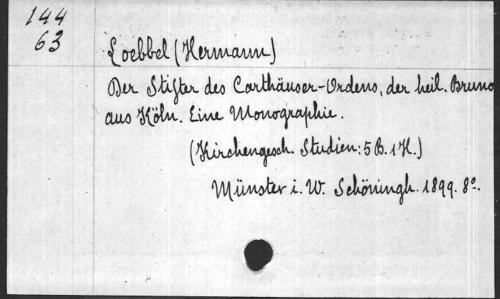 144
63
Loebbel (Hermann)
Der Stifter des Carthäuser-Ordens, der heil. Bruno
aus Köln. Eine Monographie.
(Kirchengesch. Studien: 5 B. 1 H.)
Münster i. W. Schöningh. 1899. 8º.